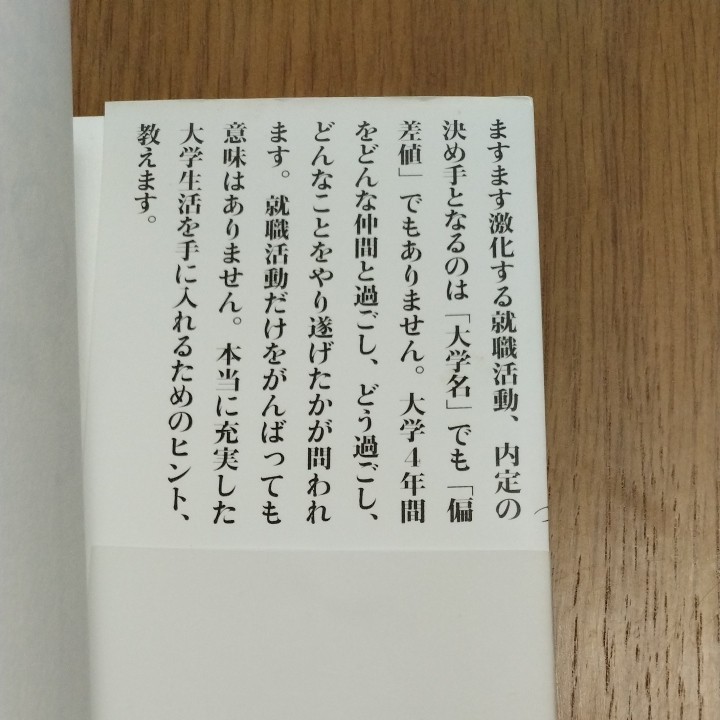 ますます激化する就職活動、内定の
決め手となるのは「大学名」でも「偏
差値」でもありません。大学4年間
をどんな仲間と過ごし、どう過ごし、
どんなことをやり遂げたかが問われ
ます。就職活動だけをがんばっても
意味はありません。本当に充実した
大学生活を手に入れるためのヒント、
教えます。